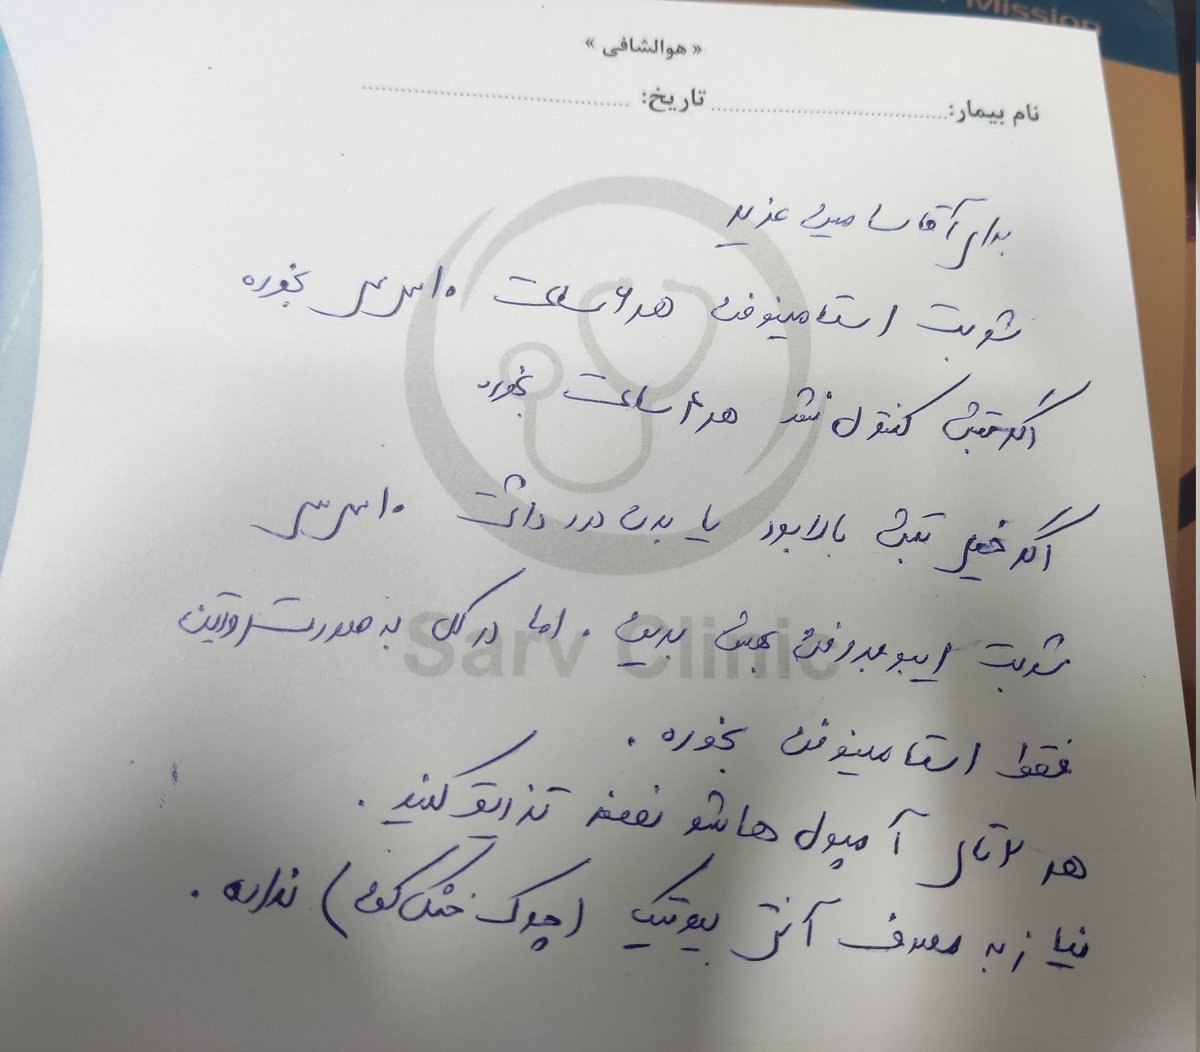 Mission
« هوالشافی »
نام بیمار: تاریخ:
برای آقا سامین عزیز
شربت استامینوفن هر ۶ ساعت ۱۰ سی سی بخوره
اگر تبش کنترل نشد هر ۴ ساعت بخوره
اگر خیلی تبش بالا بود یا بدن درد داشت ۱۰ سی سی
شربت ایبوبروفن بهش بدین . اما در کل به صورت روتین
فقط استامینوفن بخوره .
هر ۲ تای آمپول هاشو نصفه تزریق کنید .
نیاز به مصرف آنتی بیوتیک (چرک خشک کن) نداره .
Sarv Clinic